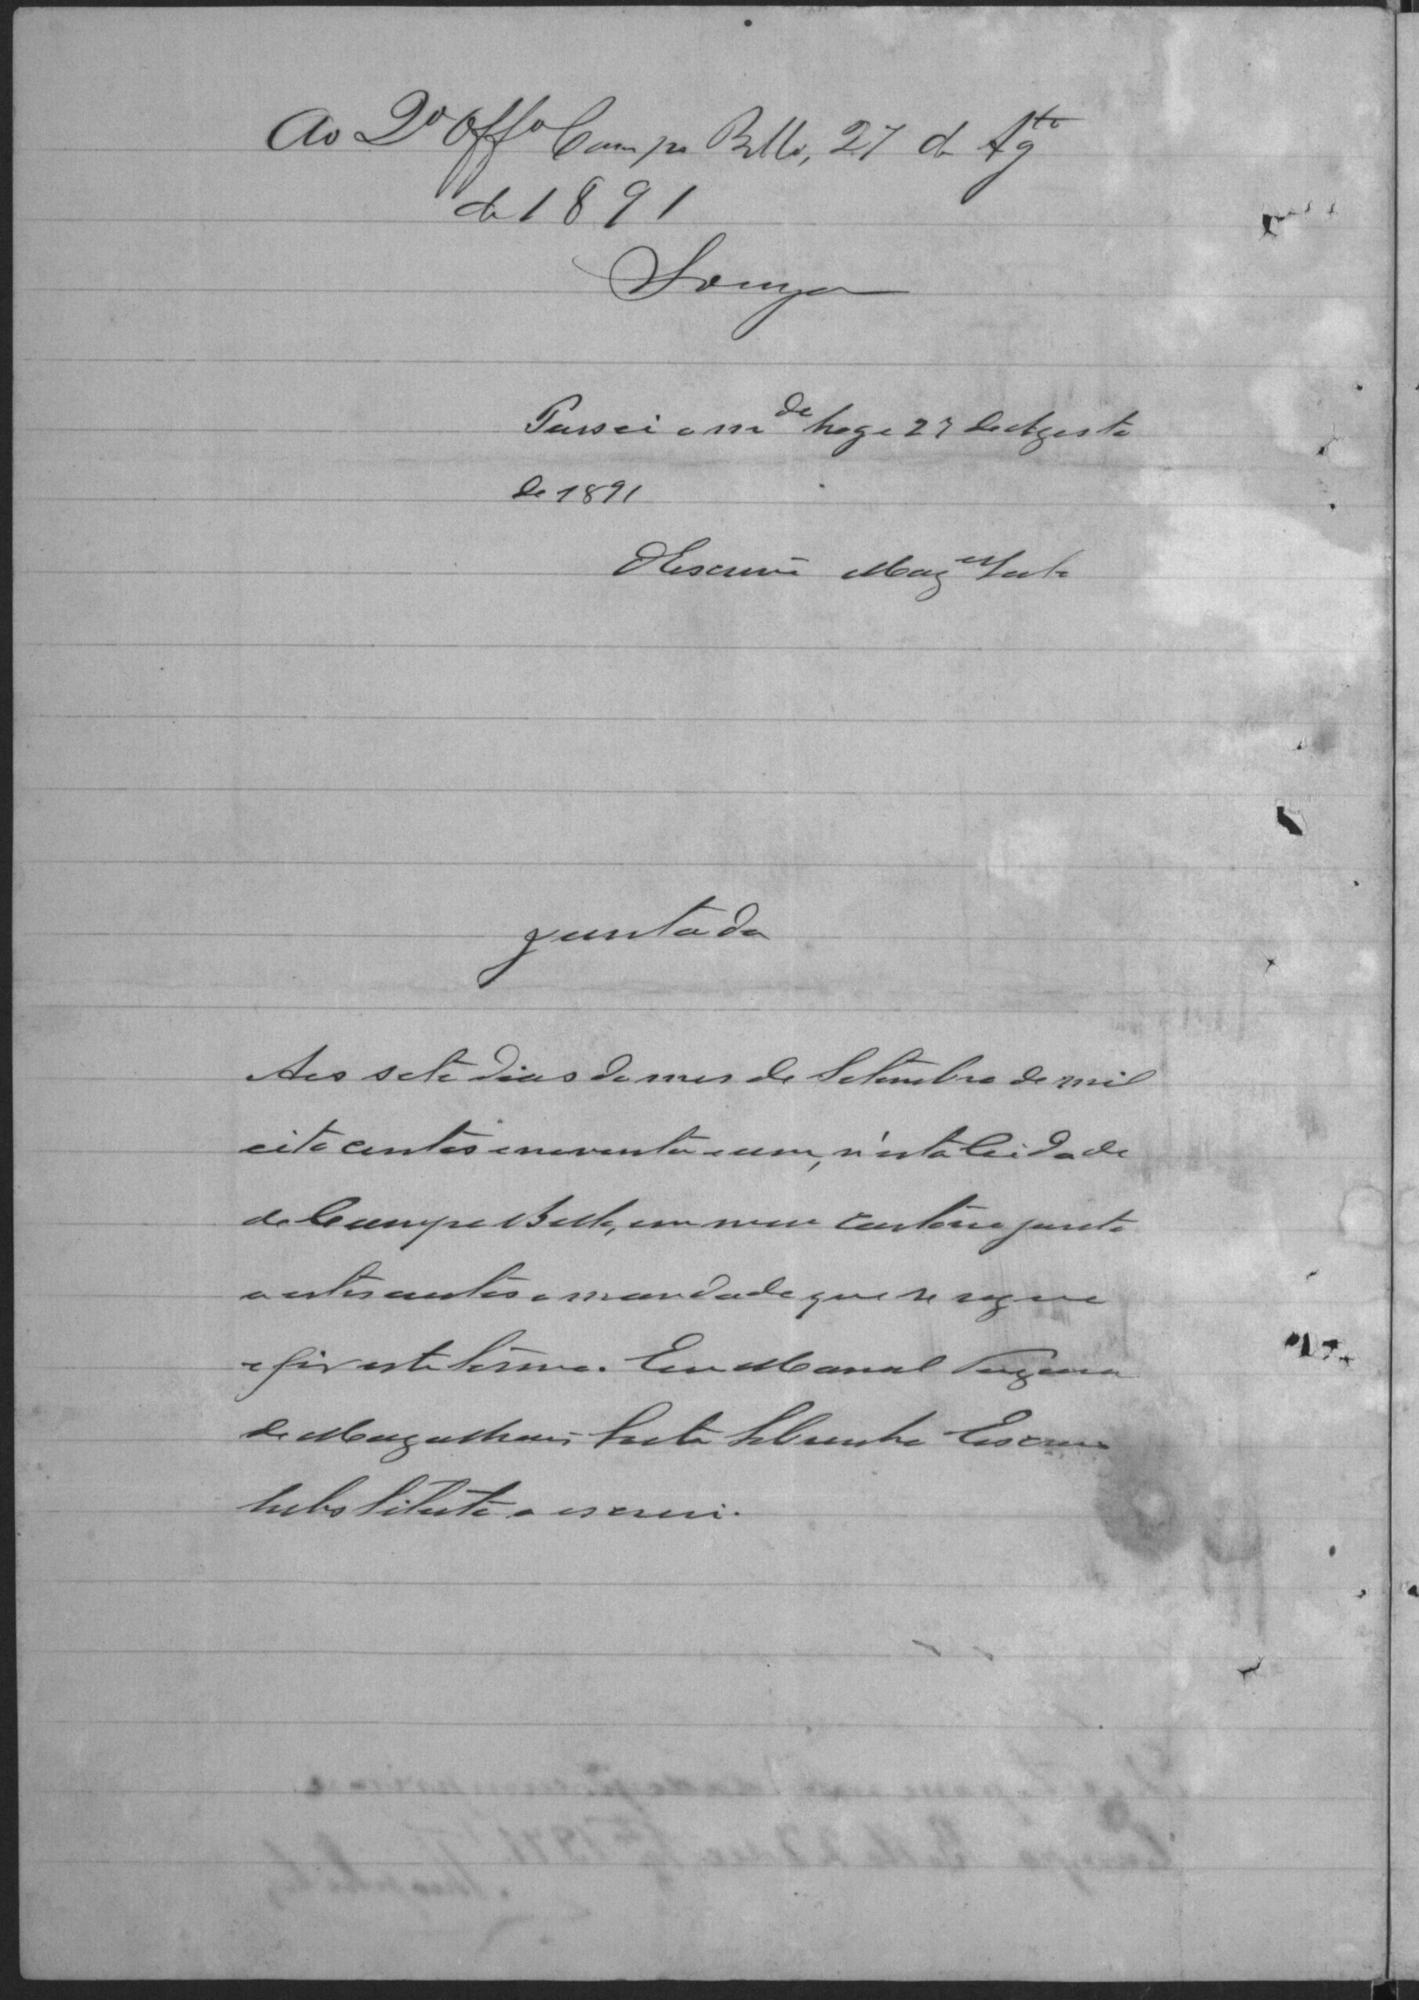 Ao 2º Offº Campo Bello, 27 de Agto
de 1891
Souza
Passei o mde hoje 27 de Agosto
de 1891
O Escrivã Mages
juntada
Aos sete dias do mes de Setembro de mil
oito centos e noventa e um, n'esta Cidade
de Campo Bello, em meu Cartorio junto
a estes autos o mandado que se segue
e fiz este termo. Eu Manoel
de Magalhães
Substituto o escrevi.